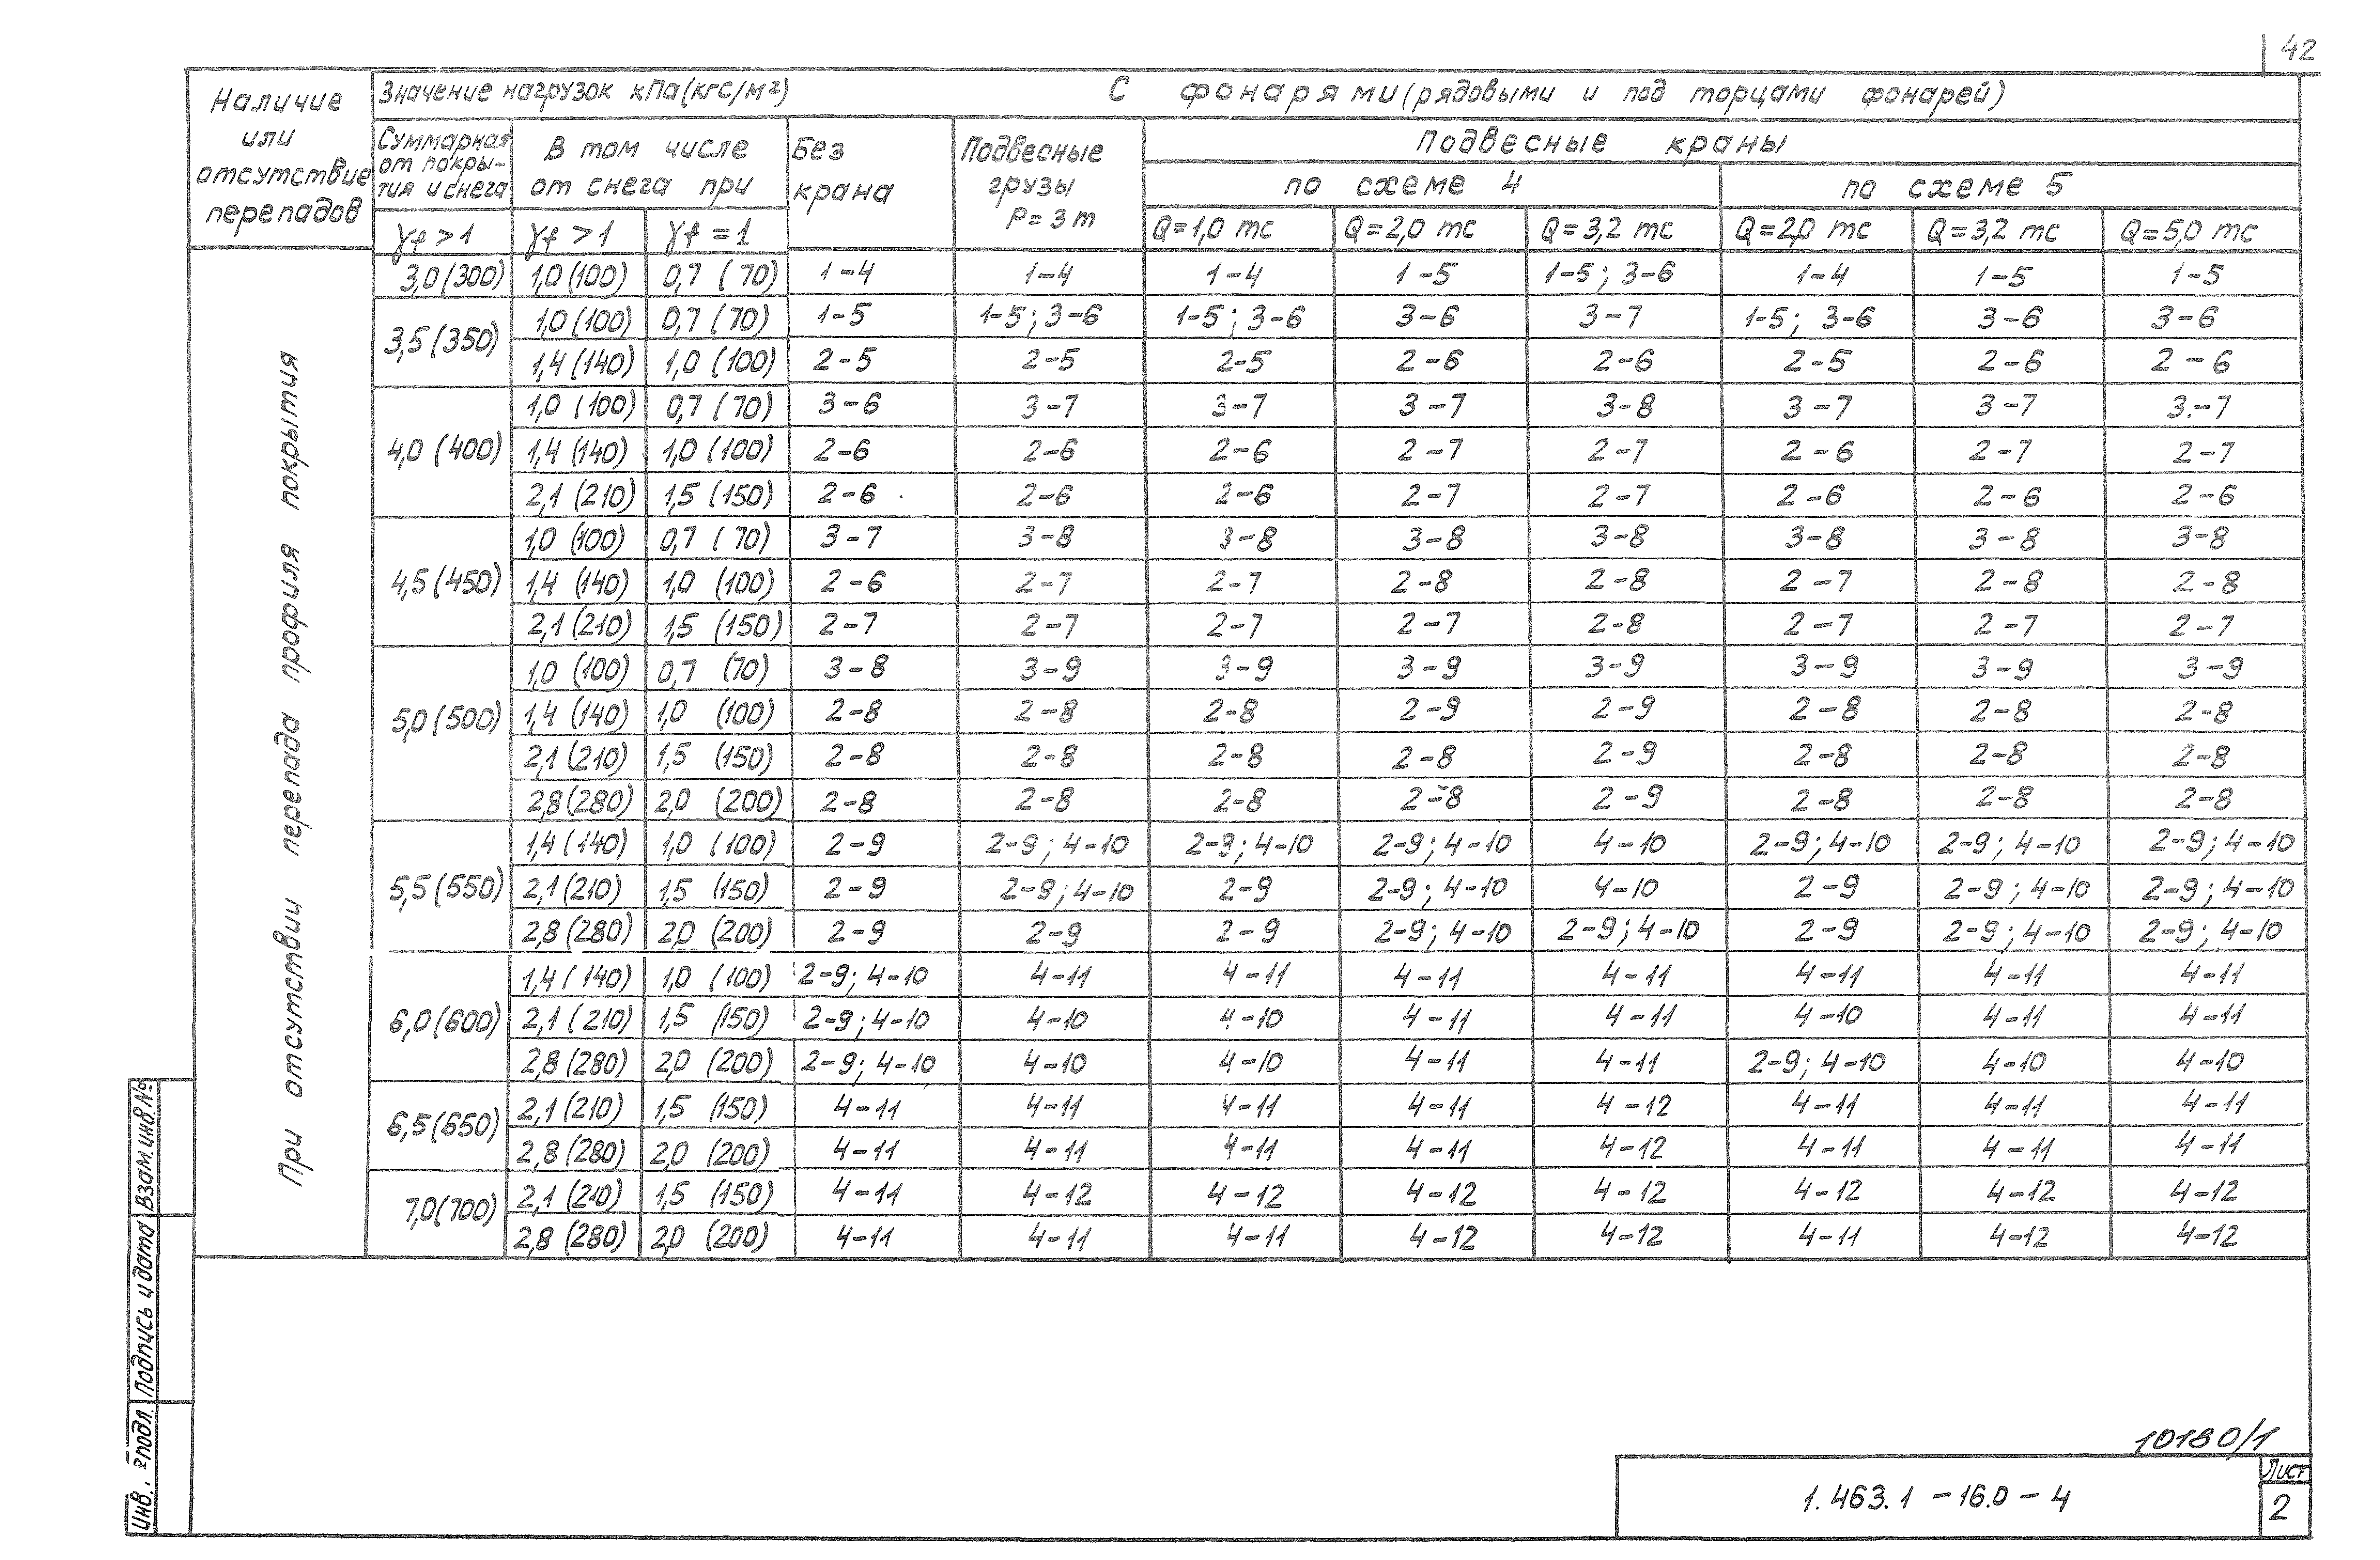 42
Наличие или отсутствие перепадов
Значение нагрузок кПа (кгс/м²)
С фонарями (рядовыми и под торцами фонарей)
Суммарная от покры-тия и снега
В том числе от снега при
Без крана
Подвесные грузы P = 3 т
Подвесные краны
по схеме 4
по схеме 5
γf > 1 γf > 1 γf = 1 Q=1,0 тс Q=2,0 тс Q=3,2 тс Q=2,0 тс Q=3,2 тс Q=5,0 тс
При отсутствии перепада профиля покрытия
3,0 (300) 1,0 (100) 0,7 (70) 1-4 1-4 1-4 1-5 1-5; 3-6 1-4 1-5 1-5
3,5 (350) 1,0 (100) 0,7 (70) 1-5 1-5; 3-6 1-5; 3-6 3-6 3-7 1-5; 3-6 3-6 3-6
1,4 (140) 1,0 (100) 2-5 2-5 2-5 2-6 2-6 2-5 2-6 2-6
4,0 (400) 1,0 (100) 0,7 (70) 3-6 3-7 3-7 3-7 3-8 3-7 3-7 3-7
1,4 (140) 1,0 (100) 2-6 2-6 2-6 2-7 2-7 2-6 2-7 2-7
2,1 (210) 1,5 (150) 2-6 2-6 2-6 2-7 2-7 2-6 2-6 2-6
4,5 (450) 1,0 (100) 0,7 (70) 3-7 3-8 3-8 3-8 3-8 3-8 3-8 3-8
1,4 (140) 1,0 (100) 2-6 2-7 2-7 2-8 2-8 2-7 2-8 2-8
2,1 (210) 1,5 (150) 2-7 2-7 2-7 2-7 2-8 2-7 2-7 2-7
5,0 (500) 1,0 (100) 0,7 (70) 3-8 3-9 3-9 3-9 3-9 3-9 3-9 3-9
1,4 (140) 1,0 (100) 2-8 2-8 2-8 2-9 2-9 2-8 2-8 2-8
2,1 (210) 1,5 (150) 2-8 2-8 2-8 2-8 2-9 2-8 2-8 2-8
2,8 (280) 2,0 (200) 2-8 2-8 2-8 2-8 2-9 2-8 2-8 2-8
5,5 (550) 1,4 (140) 1,0 (100) 2-9 2-9; 4-10 2-9; 4-10 2-9; 4-10 4-10 2-9; 4-10 2-9; 4-10 2-9; 4-10
2,1 (210) 1,5 (150) 2-9 2-9; 4-10 2-9 2-9; 4-10 4-10 2-9 2-9; 4-10 2-9; 4-10
2,8 (280) 2,0 (200) 2-9 2-9 2-9 2-9; 4-10 2-9; 4-10 2-9 2-9; 4-10 2-9; 4-10
6,0 (600) 1,4 (140) 1,0 (100) 2-9; 4-10 4-11 4-11 4-11 4-11 4-11 4-11 4-11
2,1 (210) 1,5 (150) 2-9; 4-10 4-10 4-10 4-11 4-11 4-10 4-11 4-11
2,8 (280) 2,0 (200) 2-9; 4-10 4-10 4-10 4-11 4-11 2-9; 4-10 4-10 4-10
6,5 (650) 2,1 (210) 1,5 (150) 4-11 4-11 4-11 4-11 4-12 4-11 4-11 4-11
2,8 (280) 2,0 (200) 4-11 4-11 4-11 4-11 4-12 4-11 4-11 4-11
7,0 (700) 2,1 (210) 1,5 (150) 4-11 4-12 4-12 4-12 4-12 4-12 4-12 4-12
2,8 (280) 2,0 (200) 4-11 4-11 4-11 4-12 4-12 4-11 4-12 4-12
Взам. инв. №
Подпись и дата
Инв. № подл.
10180/1
1.463.1-16.0-4
Лист
2